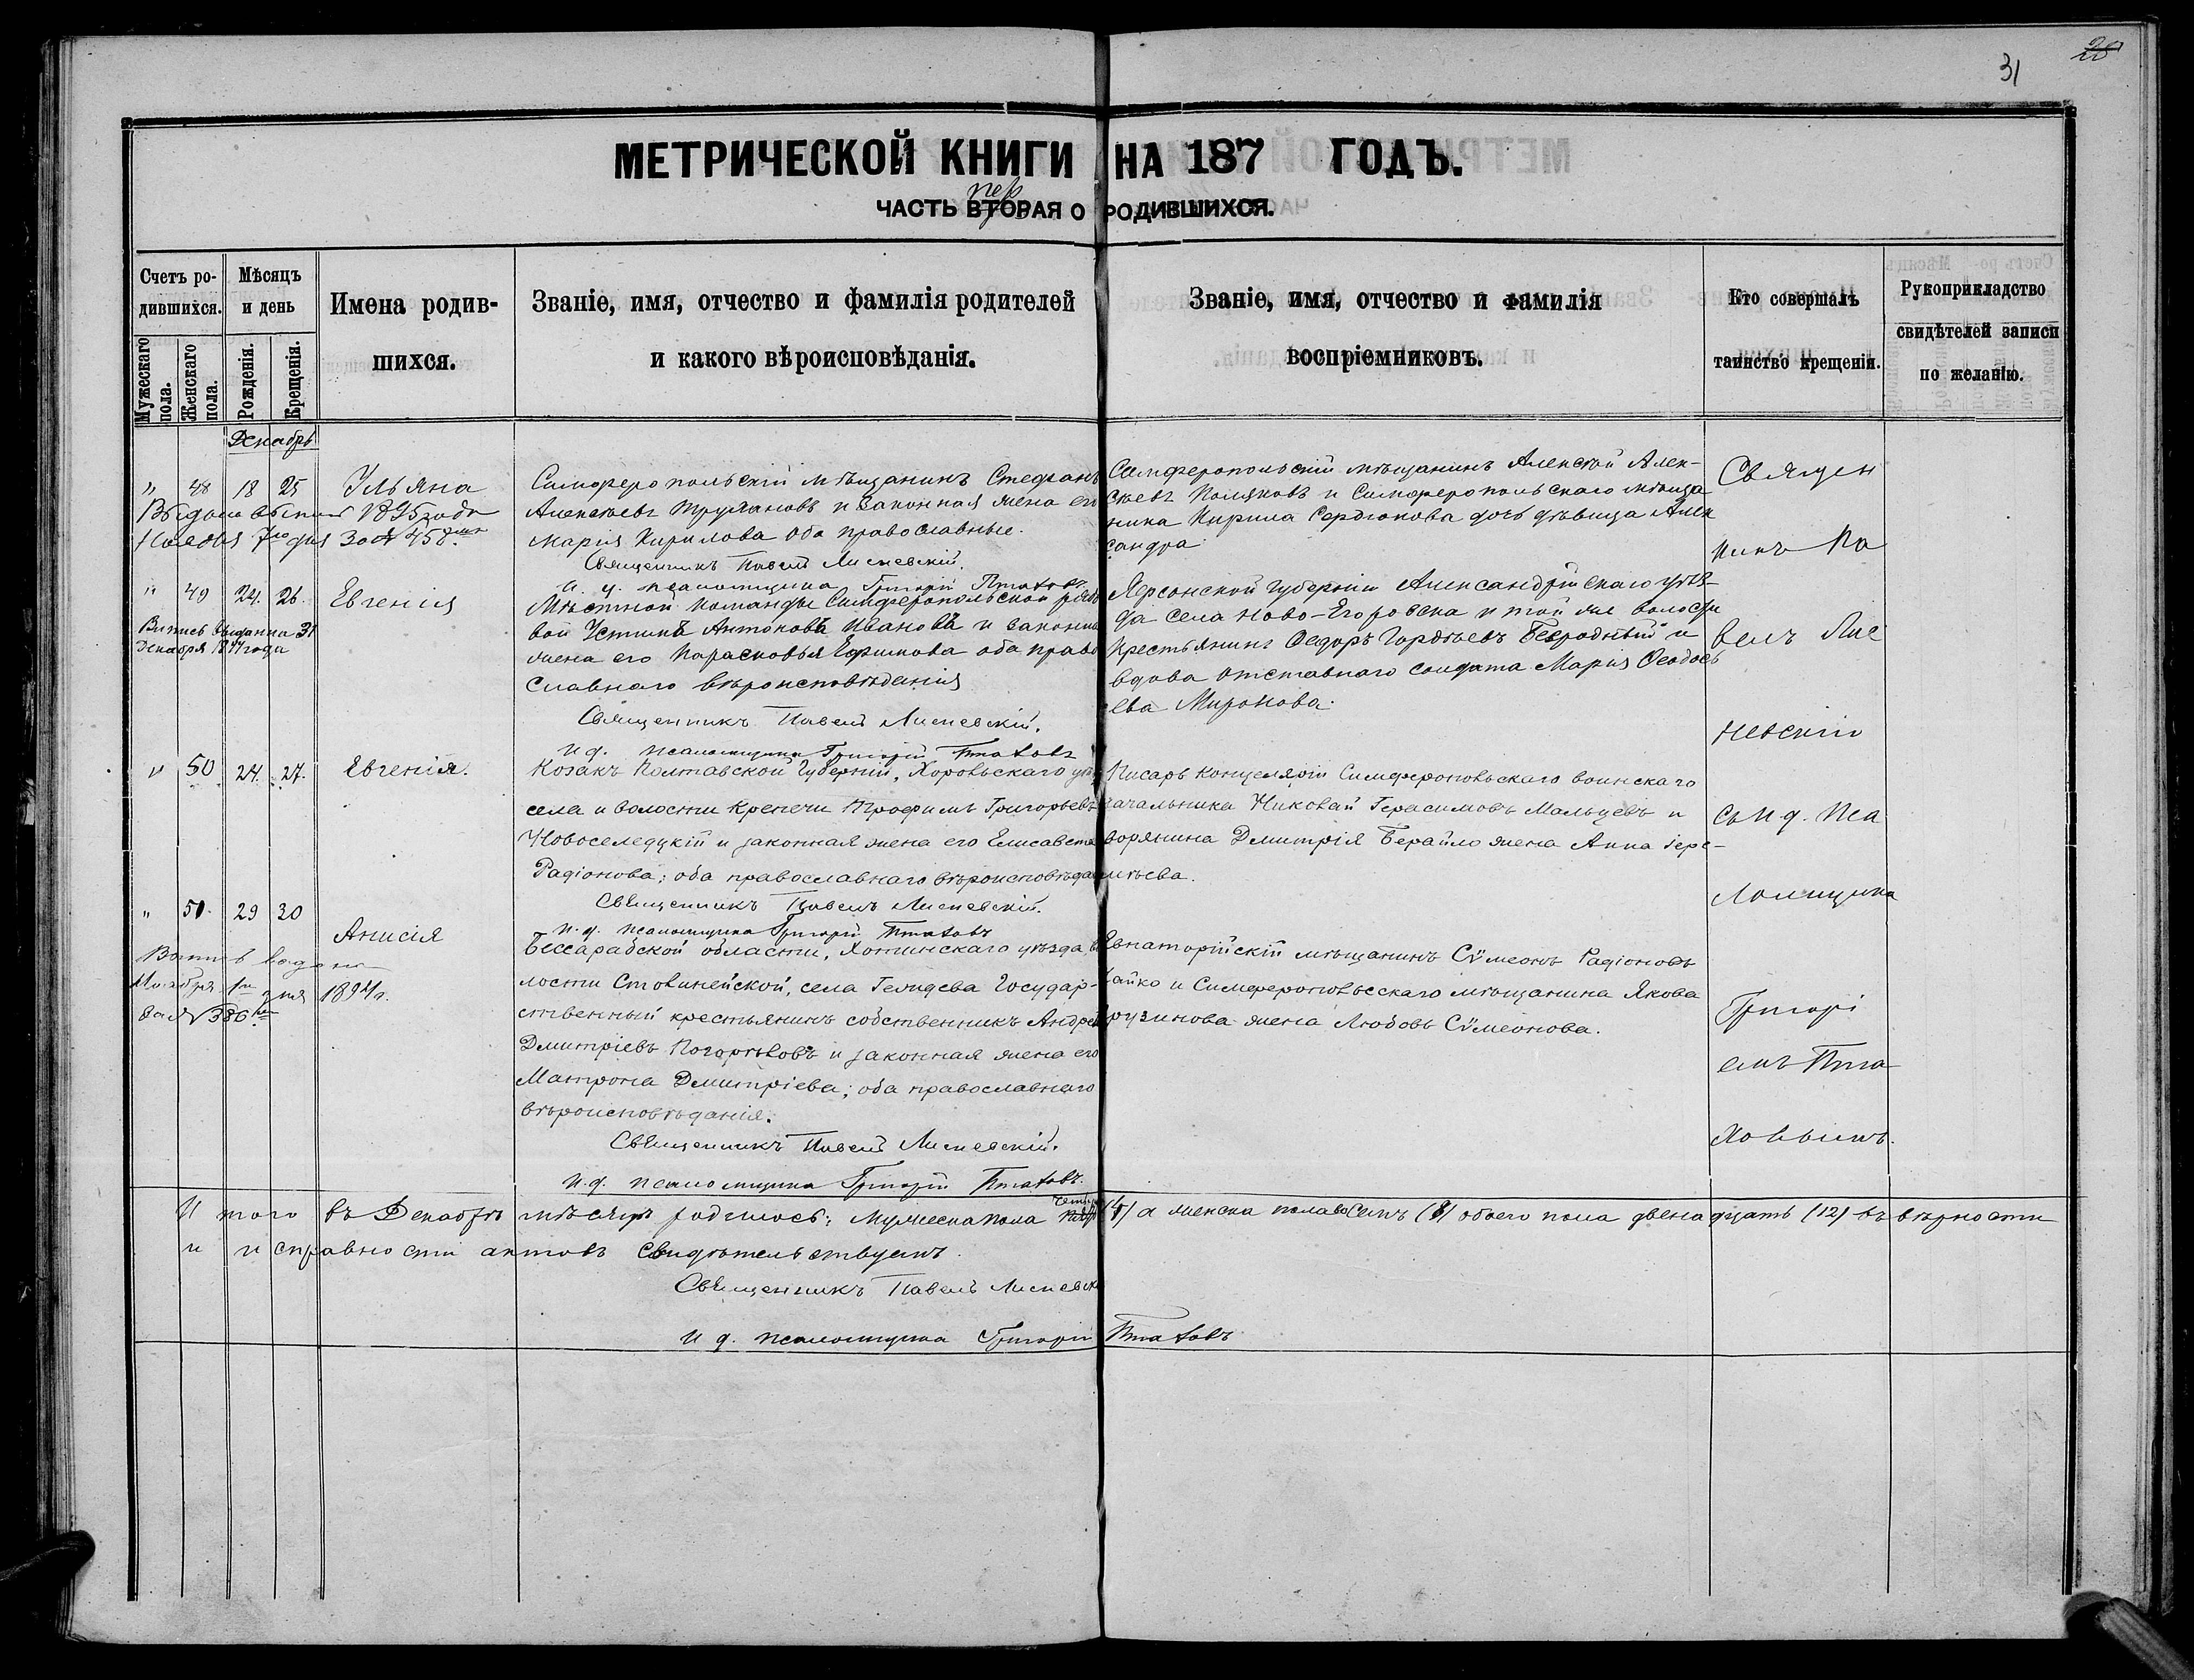 31
28
МЕТРИЧЕСКОЙ КНИГИ НА 187 ГОДЪ.
пер
ЧАСТЬ ВТОРАЯ О РОДИВШИХСЯ.
Счетъ ро-
дившихся.
Мужескаго пола.
Женскаго пола.
Мѣсяцъ
и день
Рожденія.
Крещенія.
Имена родив-
шихся.
Званіе, имя, отчество и фамилія родителей
и какого вѣроисповѣданія.
Званіе, имя, отчество и фамилія
воспріемниковъ.
Кто совершалъ
таинство крещенія.
Рукоприкладство
свидѣтелей записи
по желанію.
Декабрь
" 48 18 25 Ульяна
1895 года
Ноября 7го дня за № 458
Симферопольскій мѣщанинъ Стефанъ
Алексѣевъ Трухановъ и законная жена его
Марія Кирилова оба православные.
Священникъ Павелъ Лисневскій.
и. д. псаломщика Григорій Птаховъ
Симферопольскій мѣщанинъ Алексѣй Алек-
сѣевъ Поляковъ и Симферопольскаго мѣща
нина Кирила Сердюкова дочь дѣвица Алек
сандра
" 49 24. 26. Евгенія
Выпись выдана 31
Декабря 1877 года
Мѣстной команды Симферопольской рядо
вой Устинъ Антоновъ Ивановъ и законная
жена его Парасковья Ефимова оба право
славнаго вѣроисповѣданія
Священникъ Павелъ Лисневскій.
и д. псаломщика Григорій Птаховъ
Херсонской Губерніи Александрійскаго уѣз-
да села Ново-Егоровска и той же волости
крестьянинъ Ѳедоръ Гордѣевъ Безродный и
вдова отставного солдата Марія Ѳеодось
ева Миронова.
" 50 24. 27. Евгенія.
Козакъ Полтавской Губерніи, Хорольскаго уѣз
села и волости Крепочи Трофимъ Григорьевъ
Новоселецкій и законная жена его Елисавета
Радіонова; оба православнаго вѣроисповѣдан
Священникъ Павелъ Лисневскій.
и. д. псаломщика Григорій Птаховъ
Писарь канцеляріи Симферопольскаго воинскаго
начальника Николай Герасимовъ Мальцевъ и
ворянина Дмитрія Берайло жена Анна Іере-
мѣева.
" 51. 29 30 Анисія
Выпись выдана
Ноября 1го дня 1894 г.
за № 386
Бессарабской области, Хотинскаго уѣзда, во
лости Стовинейской, села Гелидева Государ-
ственный крестьянинъ собственникъ Андрей
Дмитріевъ Погорѣловъ и законная жена его
Матрона Дмитріева; оба православнаго
вѣроисповѣданія.
Священникъ Павелъ Лисневскій.
и. д. псаломщика Григорій Птаховъ.
Евпаторійскій мѣщанинъ Сѵмеонъ Радіоновъ
Чайко и Симферопольсскаго мѣщанина Якова
Грузинова жена Любовь Сѵмеонова.
Священ
никъ Па
велъ Лис
невскій
съ и. д. пса
ломщика
Григорі
емъ Пта
ховымъ.
Итого въ Декабрѣ мѣсяцѣ родилось: мужеска пола четыре (4) а женска пола восемь (8) обоего пола двенадцать (12) въ вѣрности
и исправности актовъ свидѣтельствуемъ.
Священникъ Павелъ Лисневск
и д. псаломщика Григорій Птаховъ